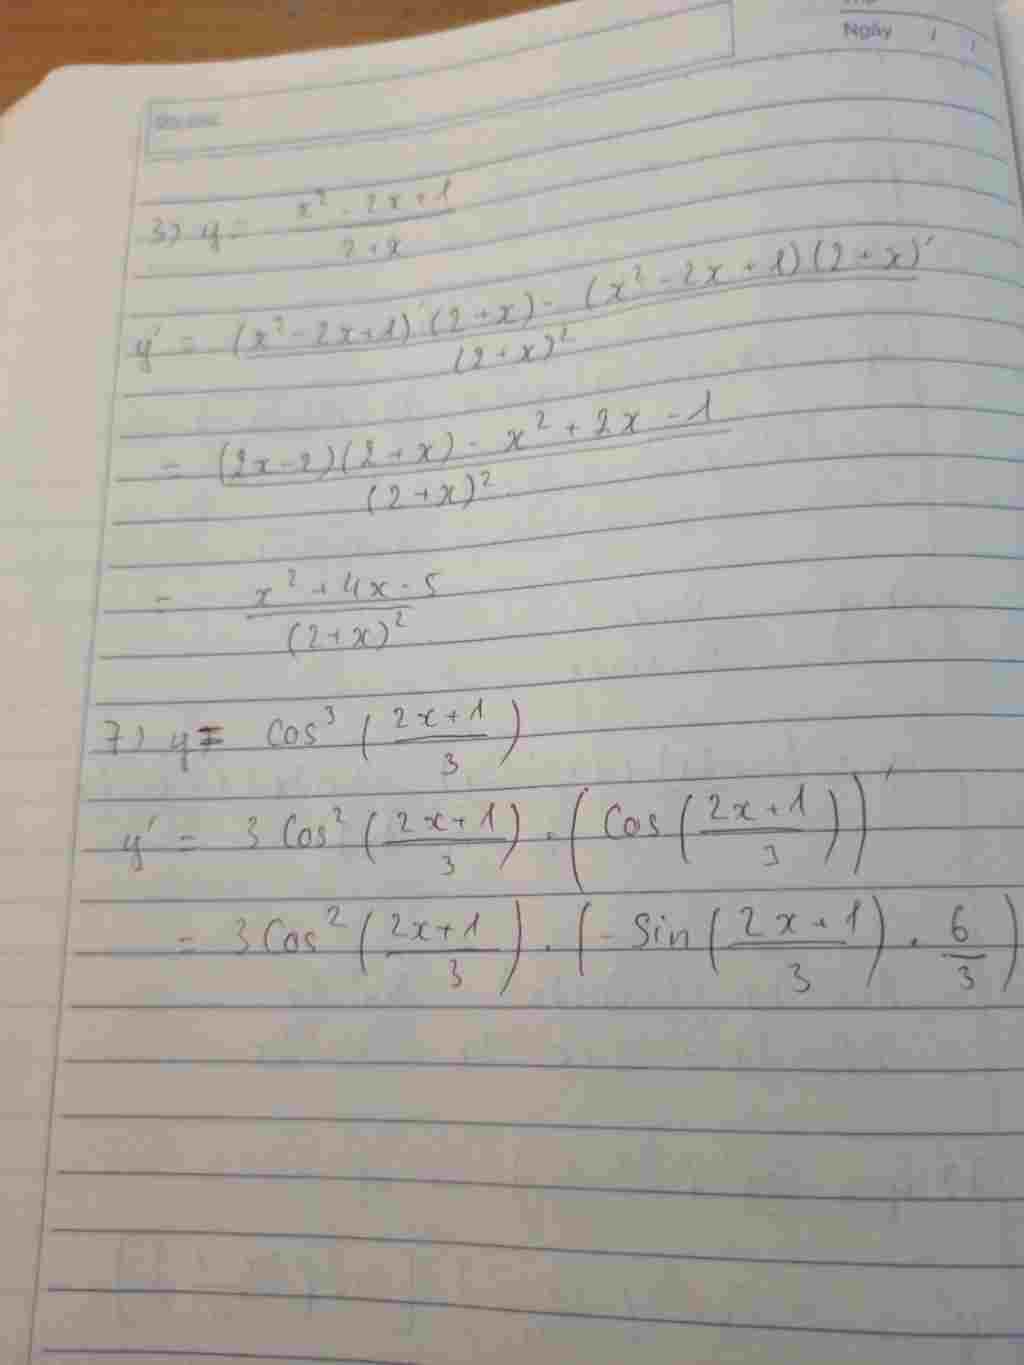 Ngày / /
3) y = (x² - 2x + 1)/(2 + x)
y' = ((x² - 2x + 1)'(2 + x) - (x² - 2x + 1)(2 + x)')/(2 + x)²
= ((2x - 2)(2 + x) - x² + 2x - 1)/(2 + x)²
= (x² + 4x - 5)/(2 + x)²
7) y = cos³((2x + 1)/3)
y' = 3 cos²((2x + 1)/3) . (cos((2x + 1)/3))'
= 3 cos²((2x + 1)/3) . (- sin((2x + 1)/3) . 6/3)